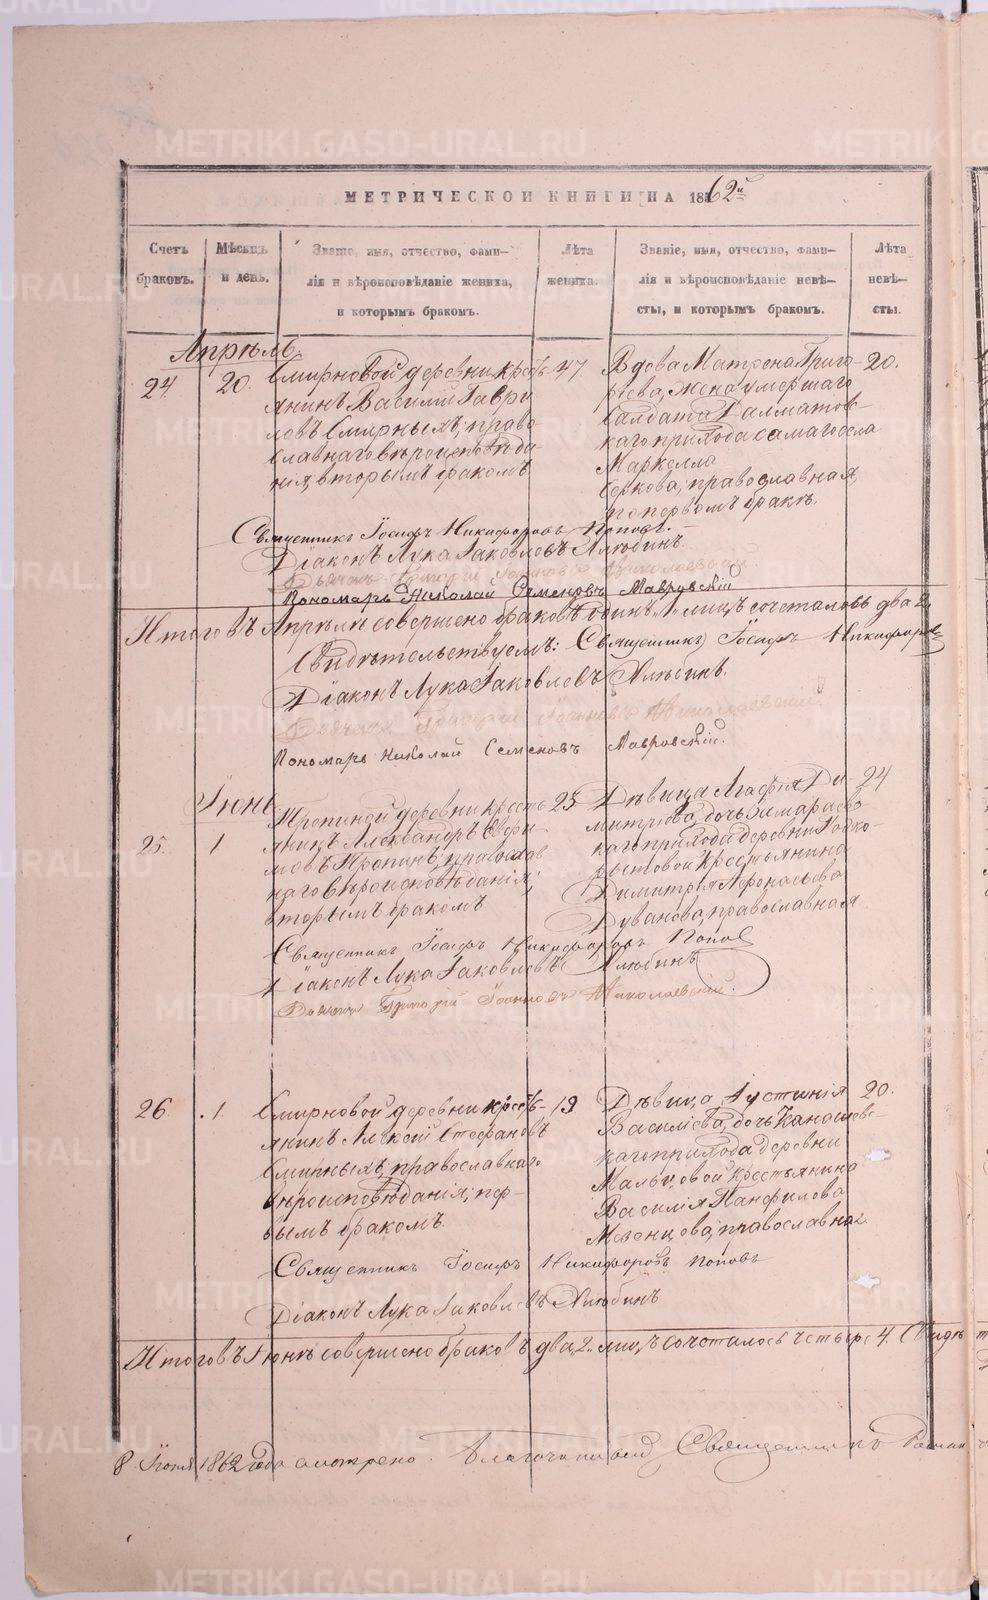 МЕТРИЧЕСКОЙ КНИГИ НА 1862й
Счетъ браковъ.
Мѣсяцъ и день.
Званіе, имя, отчество, фами-
лія и вѣроисповѣданіе жениха,
и которымъ бракомъ.
Лѣта жениха.
Званіе, имя, отчество, фами-
лія и вѣроисповѣданіе невѣ-
сты, и которымъ бракомъ.
Лѣта невѣ-
сты.
Апрѣль.
24. 20.
Смирновой деревни кресть-
янинъ Василий Гаври
ловъ Смирныхъ, право
славнаго вѣроисповѣда-
нія, вторымъ бракомъ
47
Вдова Матрена Григо-
рьева, жена умершаго
Салдата Далматов-
каго прихода самаго села
Маркелла
Серкова, православная,
по первомъ бракѣ.
20.
Священникъ Іосифъ Никифоровъ Поповъ.
Діаконъ Лука Іаковлевъ Хлюбинъ
Дьячекъ Григорій Іоанновъ Николаевскій
Пономарь Николай Семеновъ Мавровскій
Итого въ Апрѣлѣ совершено браковъ одинъ 1. лицъ сочеталось два 2.
Свидѣтельствуемъ: Священникъ Іосифъ Никифоровъ
Діаконъ Лука Іаковлевъ Хлюбинъ.
Дьячекъ Григорій Іоанновъ Николаевскій.
Пономарь Николай Семеновъ Мавровскій.
Іюнь
25. 1
Тропиной деревни кресть-
янинъ Александръ Ефи-
мовъ Тропинъ, православ
наго вѣроисповѣданія,
вторымъ бракомъ
25
Дѣвица Агафія Ди
митріева, дочь
каго прихода деревни
крестьянина
Димитрія Афонасьева
Дуванова, православная
24
Священникъ Іосифъ Никифоровъ Поповъ
Діаконъ Лука Іаковлевъ Хлюбинъ
Дьячекъ Григорій Іоанновъ Николаевскій.
26. 1.
Смирновой деревни кресть-
янинъ Алексій Стефановъ
Смирныхъ, православнаго
вѣроисповѣданія, пер-
вымъ бракомъ.
19
Дѣвица Іустинія
Васильева, дочь Канашев-
каго прихода деревни
Мальцовой крестьянина
Василія Панфилова
Мезенцова, православная
20.
Священникъ Іосифъ Никифоровъ Поповъ
Діаконъ Лука Іаковлевъ Хлюбинъ
Итого въ Іюнѣ совершено браковъ два, 2. лицъ сочеталось четыре 4. Свидѣ
8 Іюля 1862 года смотрено. Благочинный Священникъ
METRIKI.GASO-URAL.RU